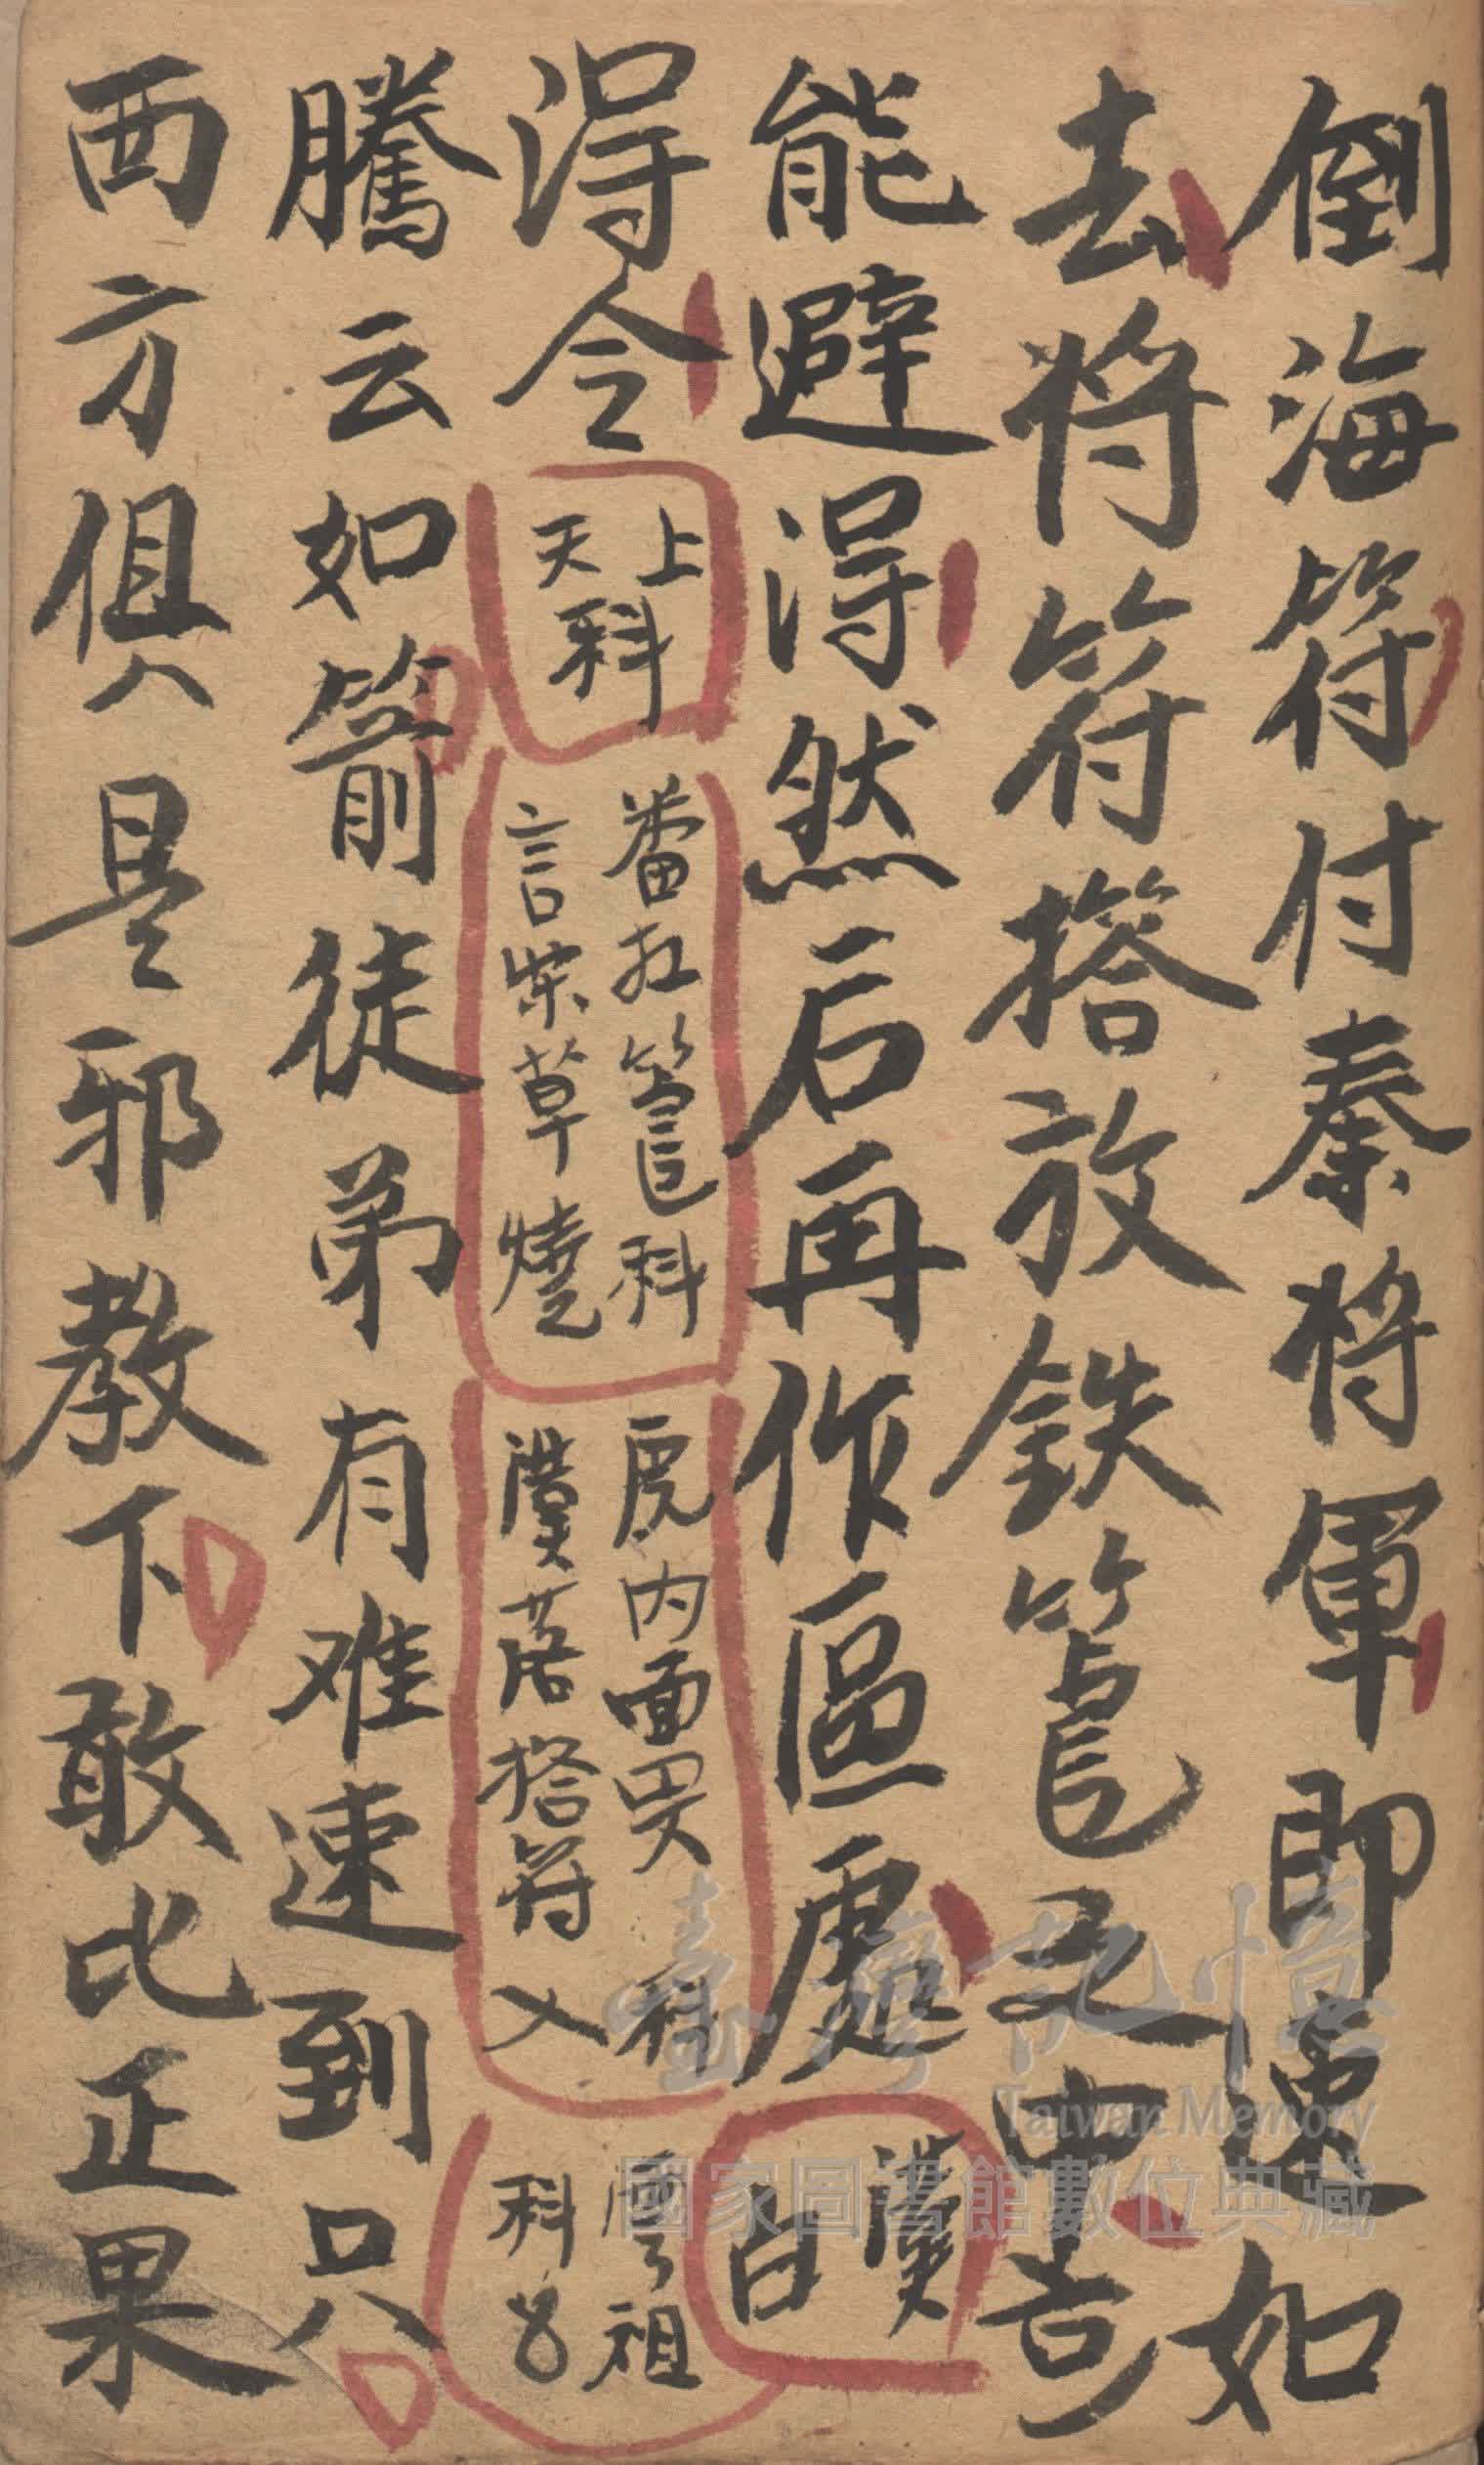 倒海符付秦將軍即速如如
去將符搭放鉄筐之中
能避得然后再作區處
漢白
得令
上天科
番
科
言柴草燒
虎內面
科
漢落搭符入
祖
科
騰云如箭徒弟有难速到只
西方俱是邪教下敢比正果
臺灣記憶
Taiwan Memory
國家圖書館數位典藏